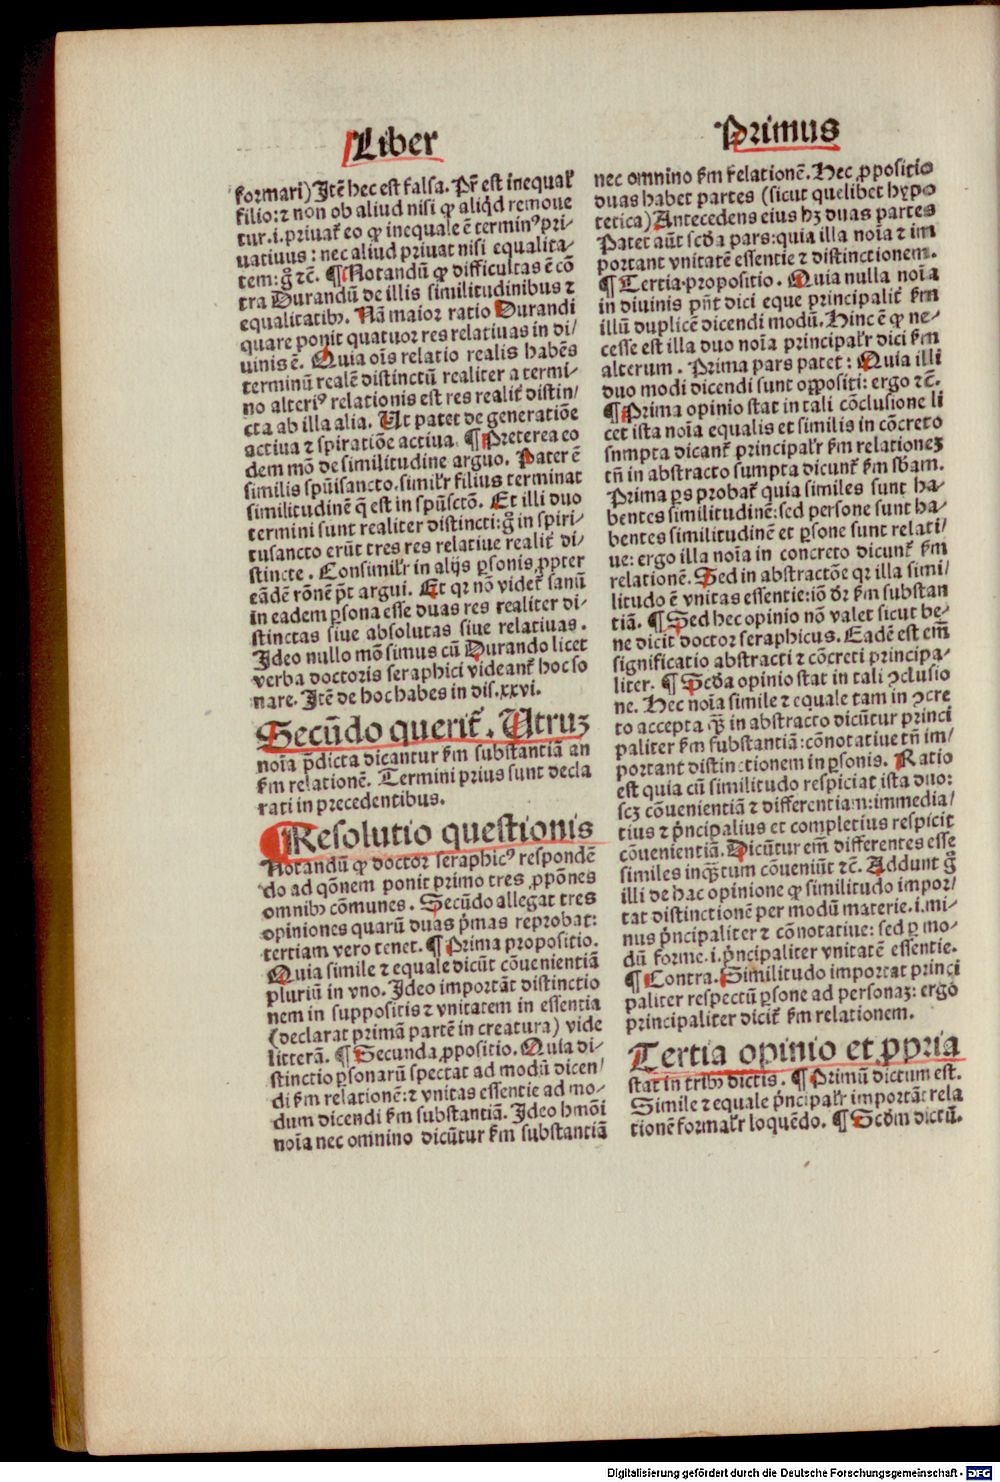 Liber
formari) Itē hec est falsa. Pr̄ est inequal᷑
filio: ⁊ non ob aliud nisi qꝫ aliq̇d remoue
tur .i. priuat᷑ eo ꝙ inequale ē terminꝰ pri⸗
uatiuus: nec aliud priuat nisi equalita⸗
tem: gͦ ⁊c̄. ¶ Notandū ꝙ difficultas ē cō
tra Durandū de illis similitudinibus ⁊
equalitatibꝫ. Nā maior ratio Durandi
quare ponit quatuor res relatiuas in di⸗
uinis ē. Quia oīs relatio realis habēs
terminū realē distinctū realiter a termi⸗
no alteriꝰ relationis est res realit᷑ distin⸗
cta ab illa alia. Ut patet de generatiōe
actiua ⁊ spiratiōe actiua. ¶ Preterea eo
dem mō de similitudine arguo. Pater ē
similis spūisancto. simil᷑r filius terminat
similitudinē q̄ est in spūsctō. Et illi duo
termini sunt realiter distincti: gͦ in spiri⸗
tusancto erūt tres res relatiue realit᷑ di⸗
stincte. Consimil᷑r in alijs ꝑsonis ꝓpter
eādē rōnē p̄t argui. Et qꝛ nō videt᷑ sanū
in eadem ꝑsona esse duas res realiter di⸗
stinctas siue absolutas siue relatiuas.
Ideo nullo mō simus cū Durando licet
verba doctoris seraphici videant᷑ hoc so
nare. Itē de hoc habes in dis. xxvi.
Secūdo querit᷑. Utruꝫ
noīa p̄dicta dicantur ẜm substantiā an
ẜm relationē. Termini prius sunt decla
rati in precedentibus.
¶ Resolutio questionis
Notandū ꝙ doctor seraphicꝰ respondē
do ad qōnem ponit primo tres ꝓpōnes
omnibꝫ cōmunes. Secūdo allegat tres
opiniones quarū duas p̄mas reprobat:
tertiam vero tenet. ¶ Prima propositio.
Quia simile ⁊ equale dicūt cōuenientiā
pluriū in vno. Ideo importāt distinctio
nem in suppositis ⁊ vnitatem in essentia
(declarat primā partē in creatura) vide
litterā. ¶ Secunda ꝓpositio. Quia di⸗
stinctio ꝑsonarū spectat ad modū dicen⸗
di ẜm relationē: ⁊ vnitas essentie ad mo⸗
dum dicendi ẜm substantiā. Ideo hmōi
noīa nec omnino dicūtur ẜm substantiā
Primus
nec omnino ẜm relationē. Hec ꝓpositio
duas habet partes (sicut quelibet hypo⸗
tetica) Antecedens eius hꝫ duas partes
Patet aūt scd̄a pars: quia illa noīa ⁊ im
portant vnitatē essentie ⁊ distinctionem.
¶ Tertia propositio. Quia nulla noīa
in diuinis pn̄t dici eque principalit᷑ ẜm
illū duplicē dicendi modū. Hinc ē ꝙ ne⸗
cesse est illa duo noīa principal᷑r dici ẜm
alterum. Prima pars patet: Quia illi
duo modi dicendi sunt oppositi: ergo ⁊c̄.
¶ Prima opinio stat in tali cōclusione li
cet ista noīa equalis et similis in cōcreto
sumpta dicant᷑ principal᷑r ẜm relationeꝫ
tn̄ in abstracto sumpta dicunt᷑ ẜm sb̄am.
Prima ꝑs probat᷑ quia similes sunt ha⸗
bentes similitudinē: sed persone sunt ha⸗
bentes similitudinē et ꝑsone sunt relati⸗
ue: ergo illa noīa in concreto dicunt᷑ ẜm
relationē. Sed in abstractōe qꝛ illa simi⸗
litudo ē vnitas essentie: iō dr̄ ẜm substan
tiā. ¶ Sed hec opinio nō valet sicut be⸗
ne dicit doctor seraphicus. Eadē est em̄
significatio abstracti ⁊ cōcreti principa⸗
liter. ¶ Scd̄a opinio stat in tali ꝯclusio
ne. Hec noīa simile ⁊ equale tam in ꝯcre
to accepta qͣꝫ in abstracto dicūtur princi
paliter ẜm substantiā: cōnotatiue tn̄ im⸗
portant distinctionem in ꝑsonis. Ratio
est quia cū similitudo respiciat ista duo:
scꝫ cōuenientiā ⁊ differentiam: immedia⸗
tius ⁊ p̄ncipalius et completius respicit
cōuenientiā. Dicūtur em̄ differentes esse
similes inqͣꝫtum cōueniūt ⁊c̄. Addunt gͦ
illi de hac opinione ꝙ similitudo impor⸗
tat distinctionē per modū materie .i. mi⸗
nus p̄ncipaliter ⁊ cōnotatiue: sed ꝑ mo⸗
dū forme .i. p̄ncipaliter vnitatē essentie.
¶ Contra. Similitudo importat princi
paliter respectū ꝑsone ad personaꝫ: ergo
principaliter dicit᷑ ẜm relationem.
Tertia opinio et ꝓpria
stat in tribꝫ dictis. ¶ Primū dictum est.
Simile ⁊ equale p̄ncipal᷑r importāt rela
tionē formal᷑r loquēdo. ¶ Scd̄m dictū.
Digitalisierung gefördert durch die Deutsche Forschungsgemeinschaft - DFG